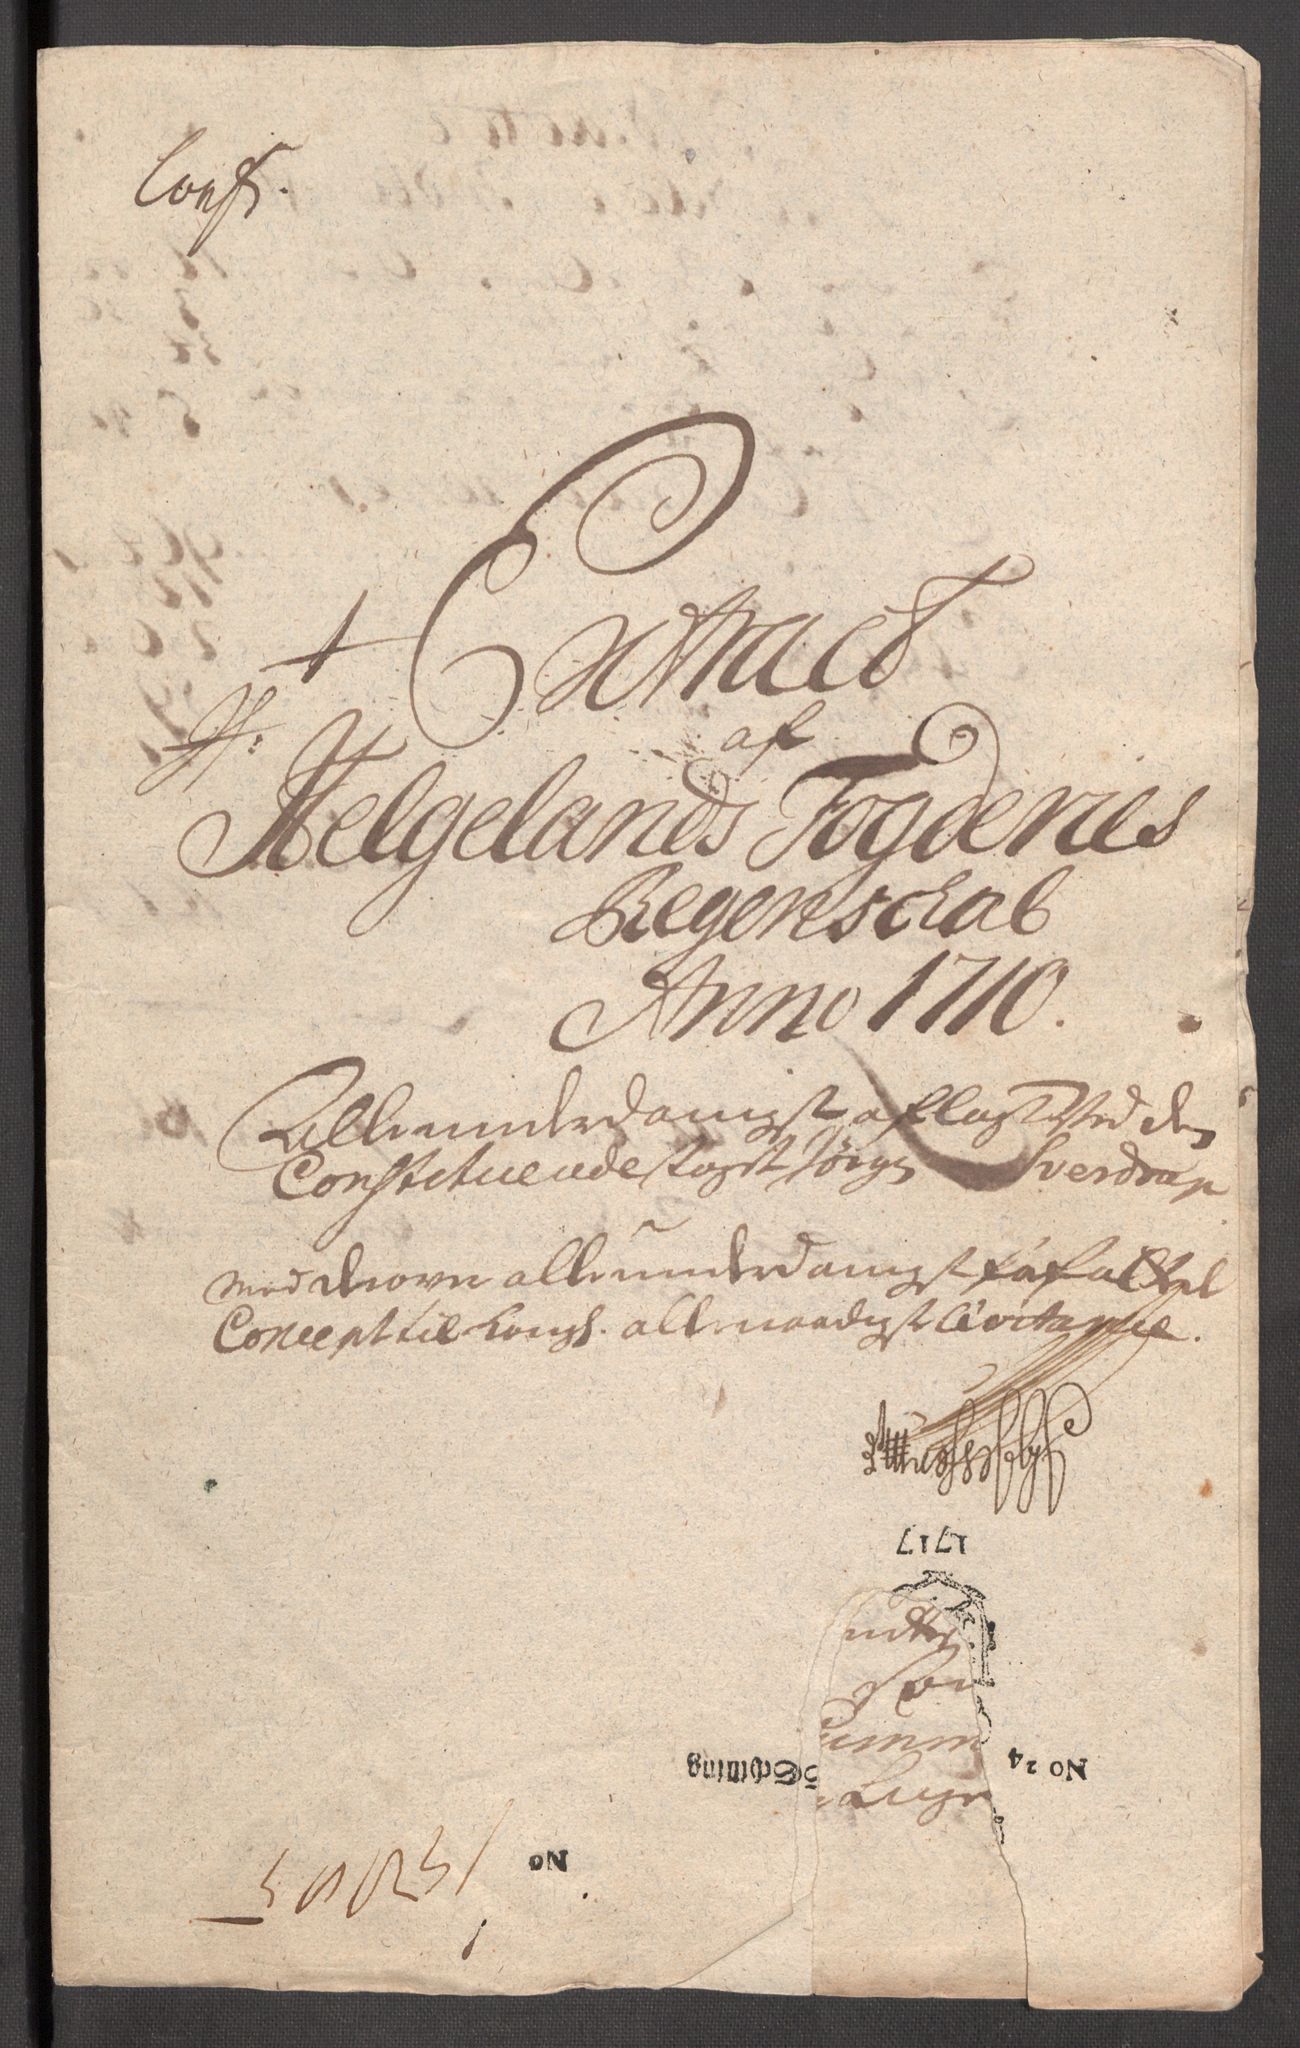 Conf.
Extract
af
H:
Helgelands Fogderies
Regenschab
Anno 1710.
Allerunderdanigst aflagt Ved den
Constituerede fogt Jörgen Sverdrup
med derover allerunderdanigst forfattet
Concept til Kongl. allernaadigst Qvitantze.
1717
Summ
5 Schilling
No 24
No